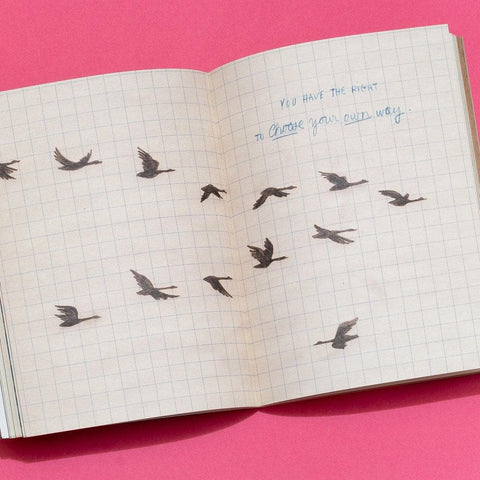 YOU HAVE THE RIGHT
TO Choose your own way.